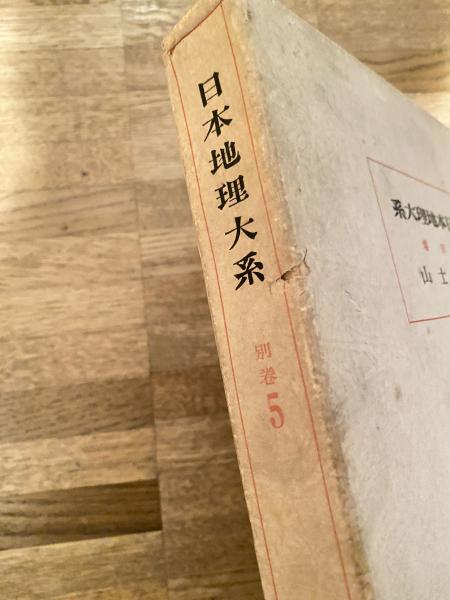 日本地理大系
別卷
5
本地理大系
士山